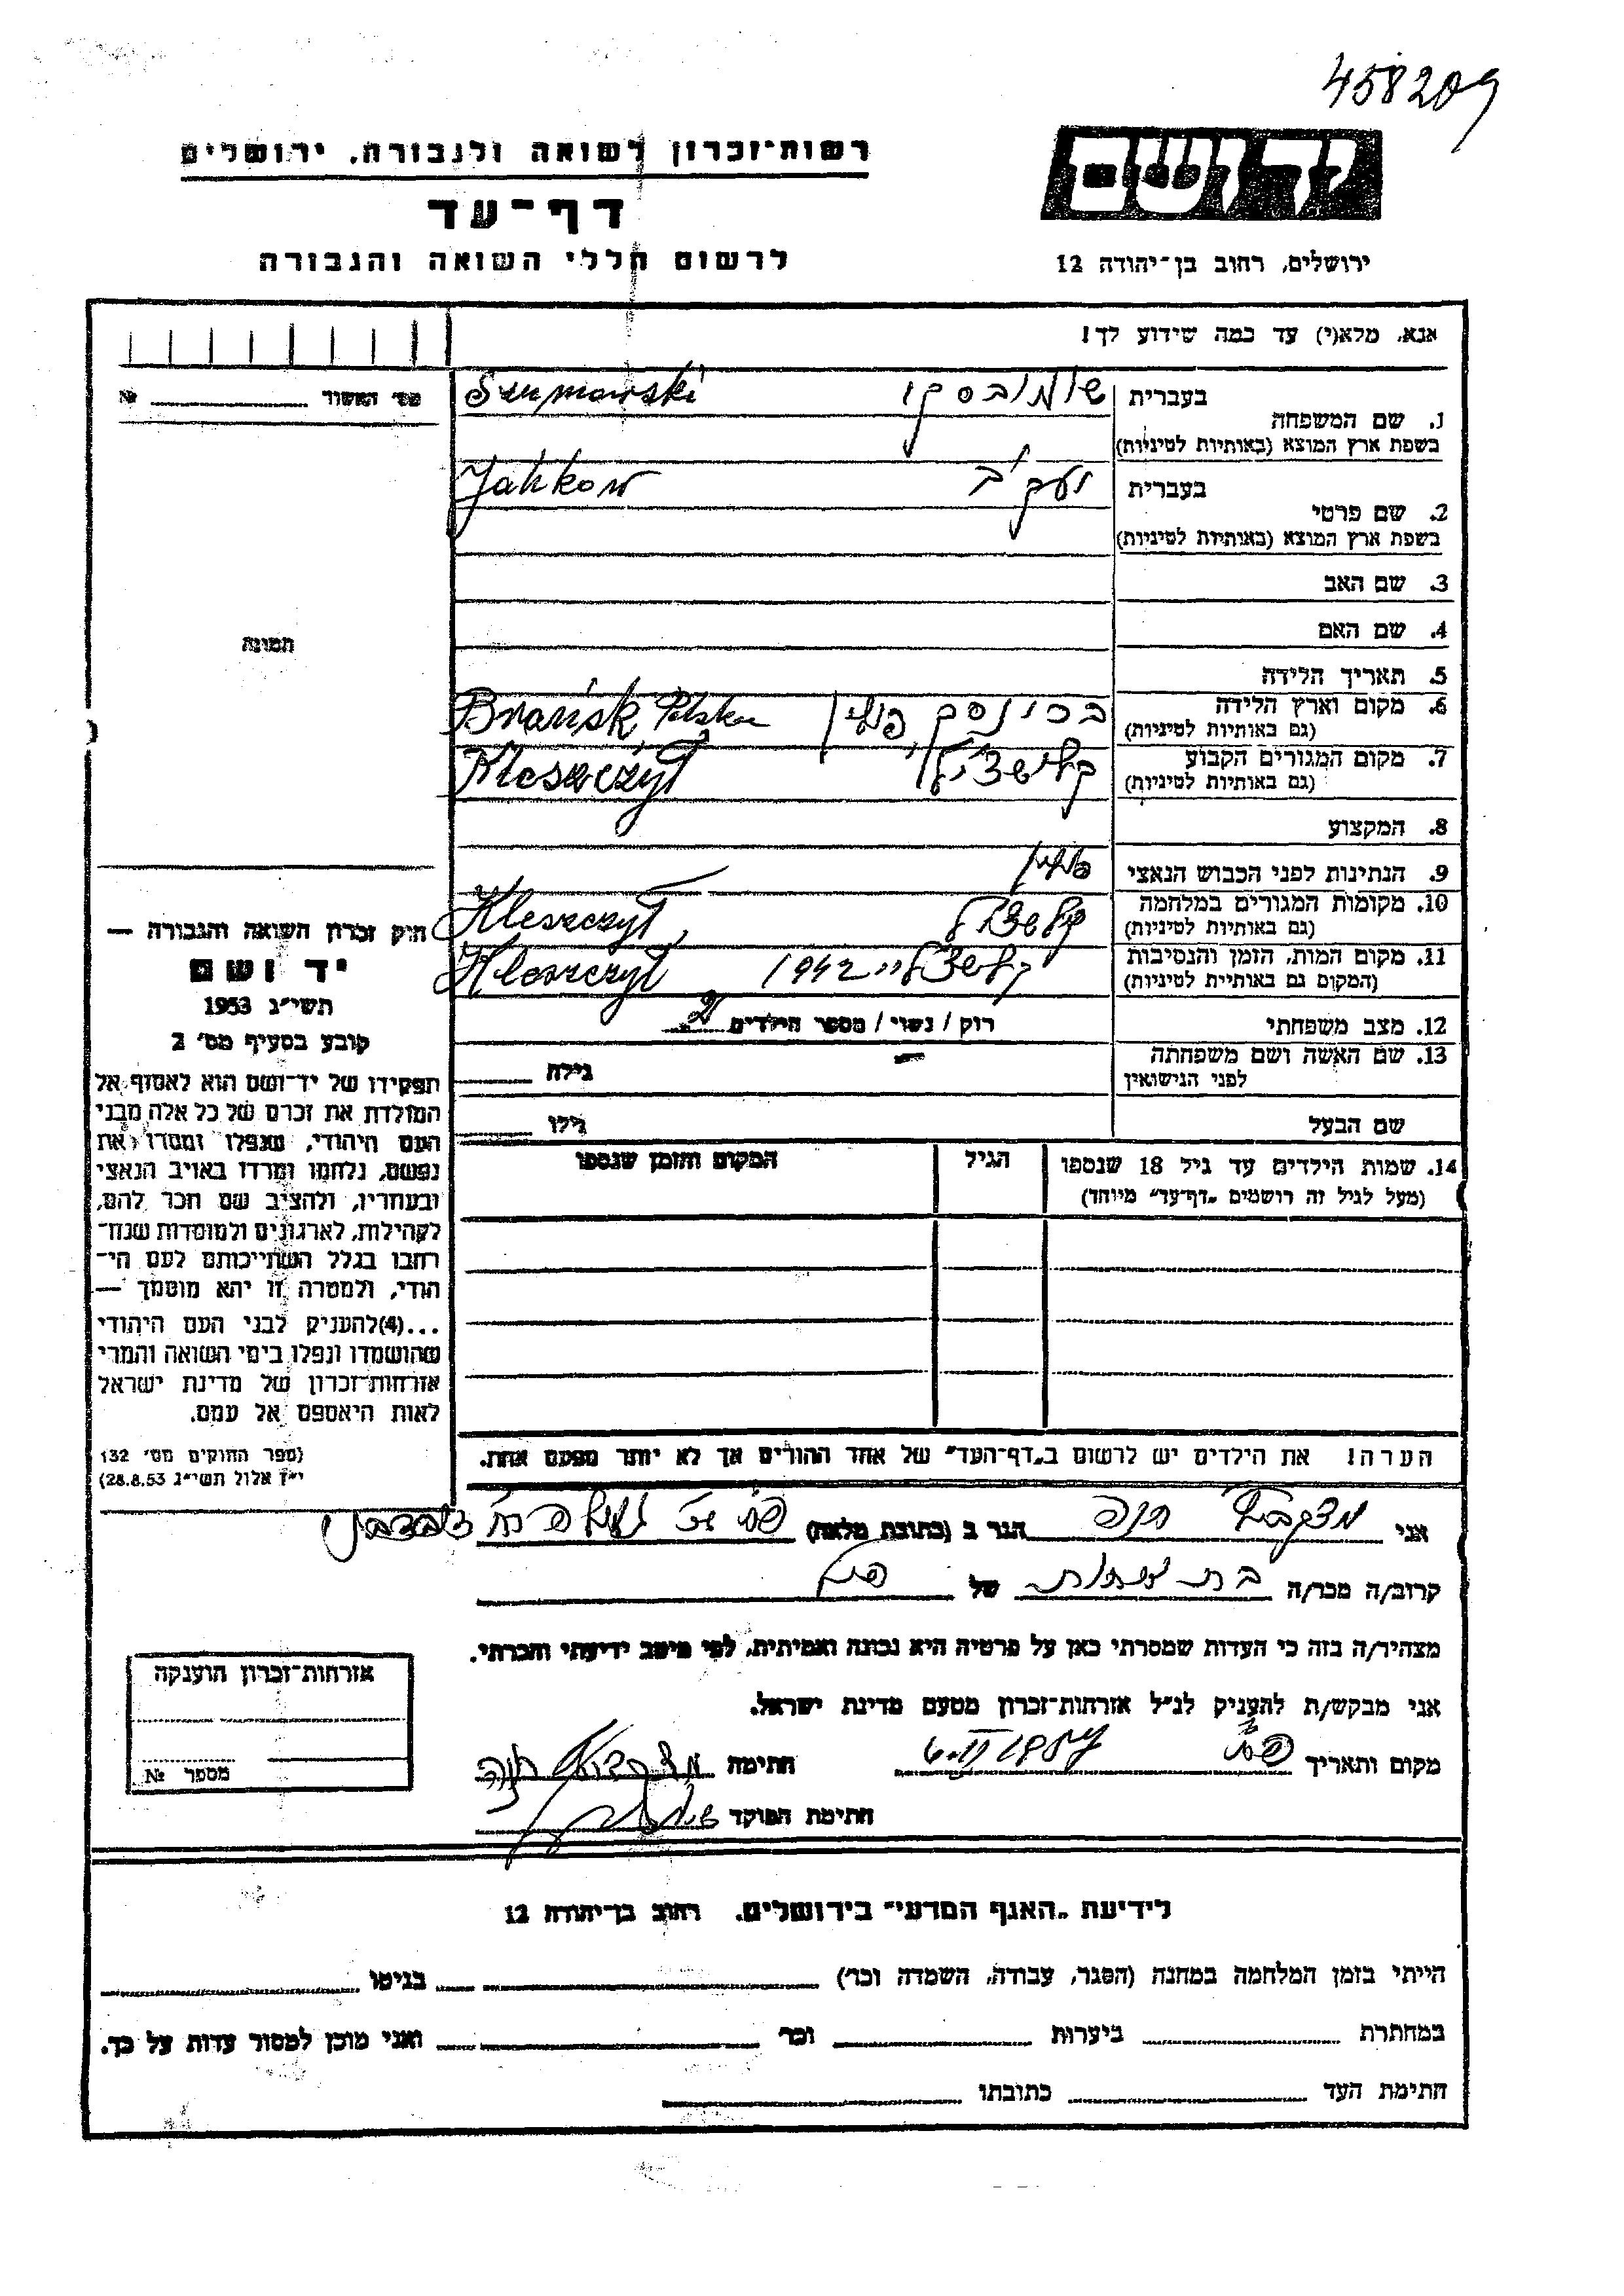 458209
רשות-זכרון לשואה ולגבורה, ירושלים
דף-עד
לרשום חללי השואה והגבורה
ידושם
ירושלים, רחוב בן-יהודה 12
אנא, מלא(י) עד כמה שידוע לך!
מס' האשור № 
1. שם המשפחה בעברית שומובסקי Szumowski
בשפת ארץ המוצא (באותיות לטיניות)
2. שם פרטי בעברית יעקב Jankow
בשפת ארץ המוצא (באותיות לטיניות)
3. שם האב
4. שם האם
תמונה
5. תאריך הלידה
6. מקום וארץ הלידה Brańsk Polska
(גם באותיות לטיניות)
7. מקום המגורים הקבוע Kleszczył
(גם באותיות לטיניות)
8. המקצוע
9. הנתינות לפני הכבוש הנאצי פולין
10. מקומות המגורים במלחמה Kleszczył
(גם באותיות לטיניות)
11. מקום המות, הזמן והנסיבות 1942 Kleszczył
(המקום גם באותיית לטיניות)
12. מצב משפחתי רוק / נשוי / מספר הילדים 2
13. שם האשה ושם משפחתה גילה
לפני הנישואין
שם הבעל גילו
14. שמות הילדים עד גיל 18 שנספו הגיל המקום והזמן שנספו
(מעל לגיל זה רושמים „דף-עד" מיוחד)
הערה! את הילדים יש לרשום ב„דף-העד" של אחד ההורים אך לא יותר מפעם אחת.
חוק זכרון השואה והגבורה —
יד ושם
תשי"ג 1953
קובע בסעיף מס' 2
תפקידו של יד-ושם הוא לאסוף אל
המולדת את זכרם של כל אלה מבני
העם היהודי, שנפלו ומסרו את
נפשם, נלחמו ומרדו באויב הנאצי
ובעוזריו, ולהציב שם וזכר להם,
לקהילות, לארגונים ולמוסדות שנח-
רבו בגלל השתייכותם לעם הי-
הודי, ולמטרה זו יהא מוסמך —
...(4)להעניק לבני העם היהודי
שהושמדו ונפלו בימי השואה והמרי
אזרחות-זכרון של מדינת ישראל
לאות היאספם אל עמם.
(ספר החוקים מס' 132
י"ז אלול תשי"ג 28.8.53)
אני הגר ב (כתובת מלאה)
קרוב/ה מכר/ה של
מצהיר/ה בזה כי העדות שמסרתי כאן על פרטיה היא נכונה ואמיתית, לפי מיטב ידיעתי והכרתי.
אני מבקש/ת להעניק לנ"ל אזרחות-זכרון מטעם מדינת ישראל.
מקום ותאריך חתימה
חתימת הפוקד
אזרחות-זכרון הוענקה
מספר №
לידיעת „האגף המדעי" בירושלים, רחוב בן-יהודה 12
הייתי בזמן המלחמה במחנה (הסגר, עבודה, השמדה וכו') בגיטו
במחתרת ביערות וכו' ואני מוכן למסור עדות על כך.
חתימת העד כתובתו